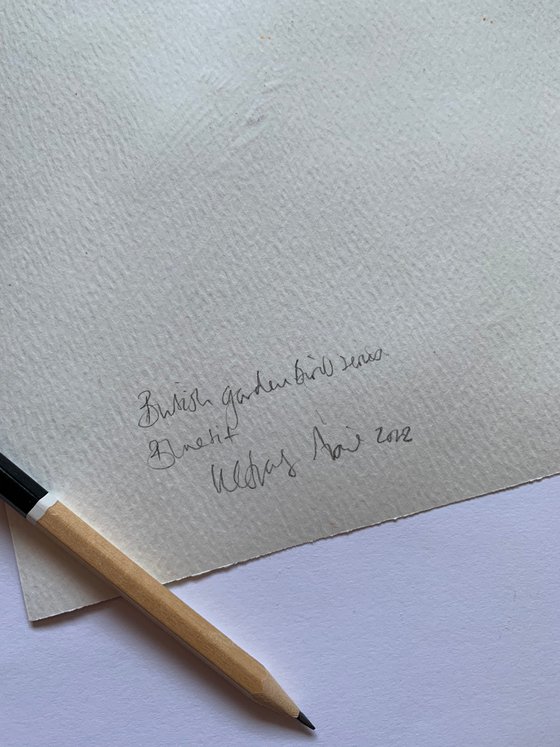 British garden bird series
Bluetit
April 2022